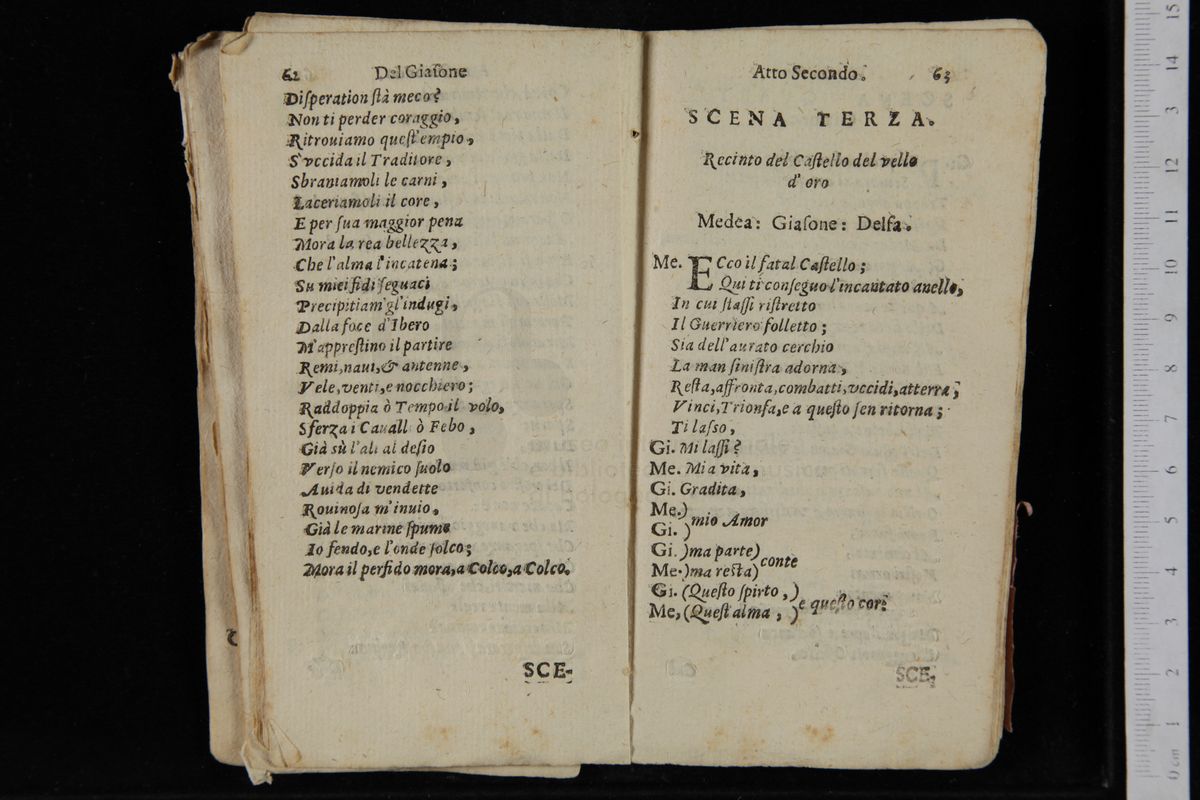 62 Del Giaſone
Diſperation ſtà meco?
Non ti perder coraggio,
Ritrouiamo queſt'empio,
S'vccida il Traditore,
Sbraniamoli le carni,
Laceriamoli il core,
E per ſua maggior pena
Mora la rea bellezza,
Che l'alma l'incatena;
Su miei fidi ſeguaci
Precipitiam'gl'indugi,
Dalla foce d'Ibero
M'appreſtino il partire
Remi, naui, & antenne,
Vele, venti, e nocchiero;
Raddoppia ò Tempo il volo,
Sferza i Cauall ò Febo,
Già sù l'ali al deſio
Verſo il nemico ſuolo
Auida di vendette
Rouinoſa m'inuio,
Già le marine ſpume
Io fendo, e l'onde ſolco;
Mora il perfido mora, a Colco, a Colco.
SCE-
Atto Secondo. 63
SCENA TERZA.
Recinto del Caſtello del vello
d'oro
Medea: Giaſone: Delfa.
Me. ECco il fatal Caſtello;
Qui ti conſeguo l'incantato anello,
In cui ſtaſſi riſtretto
Il Guerriero folletto;
Sia dell'aurato cerchio
La man ſiniſtra adorna,
Reſta, affronta, combatti, vccidi, atterra,
Vinci, Trionfa, e a queſto ſen ritorna;
Ti laſſo,
Gi. Mi laſſi?
Me. Mia vita,
Gi. Gradita,
Me.)
Gi. ) mio Amor
Gi. )ma parte)
Me.)ma reſta) conte
Gi. (Queſto ſpirto,)
Me, (Queſt'alma, ) e queſto cor:
SCE-
15
14
13
12
11
10
9
8
7
6
5
4
3
2
1
0 cm